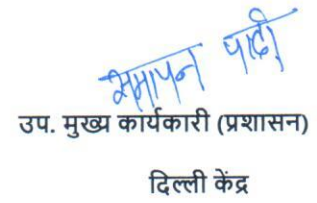 समापन पार्टी
उप. मुख्य कार्यकारी (प्रशासन)
दिल्ली केंद्र